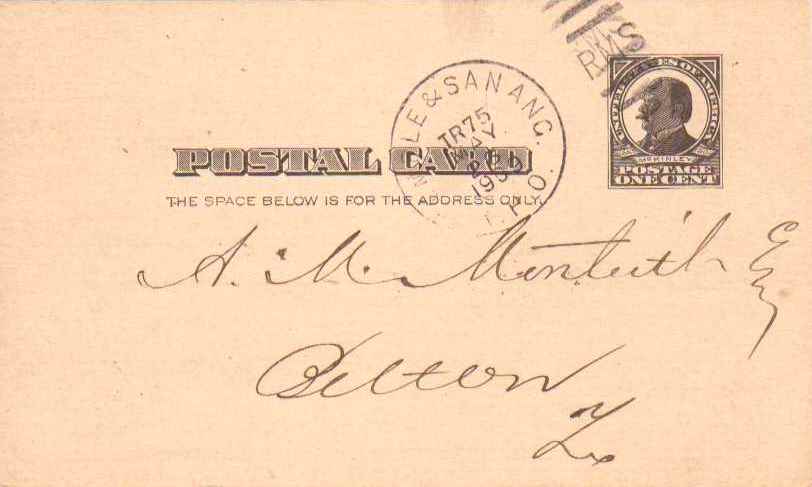 RMS
UNITED STATES OF AMERICA
McKINLEY
POSTAGE
ONE CENT
& SAN ANG.
TR 75
MAY
R.P.O.
POSTAL CARD
THE SPACE BELOW IS FOR THE ADDRESS ONLY.
A. M. Monteith Esq
Belton
Tx